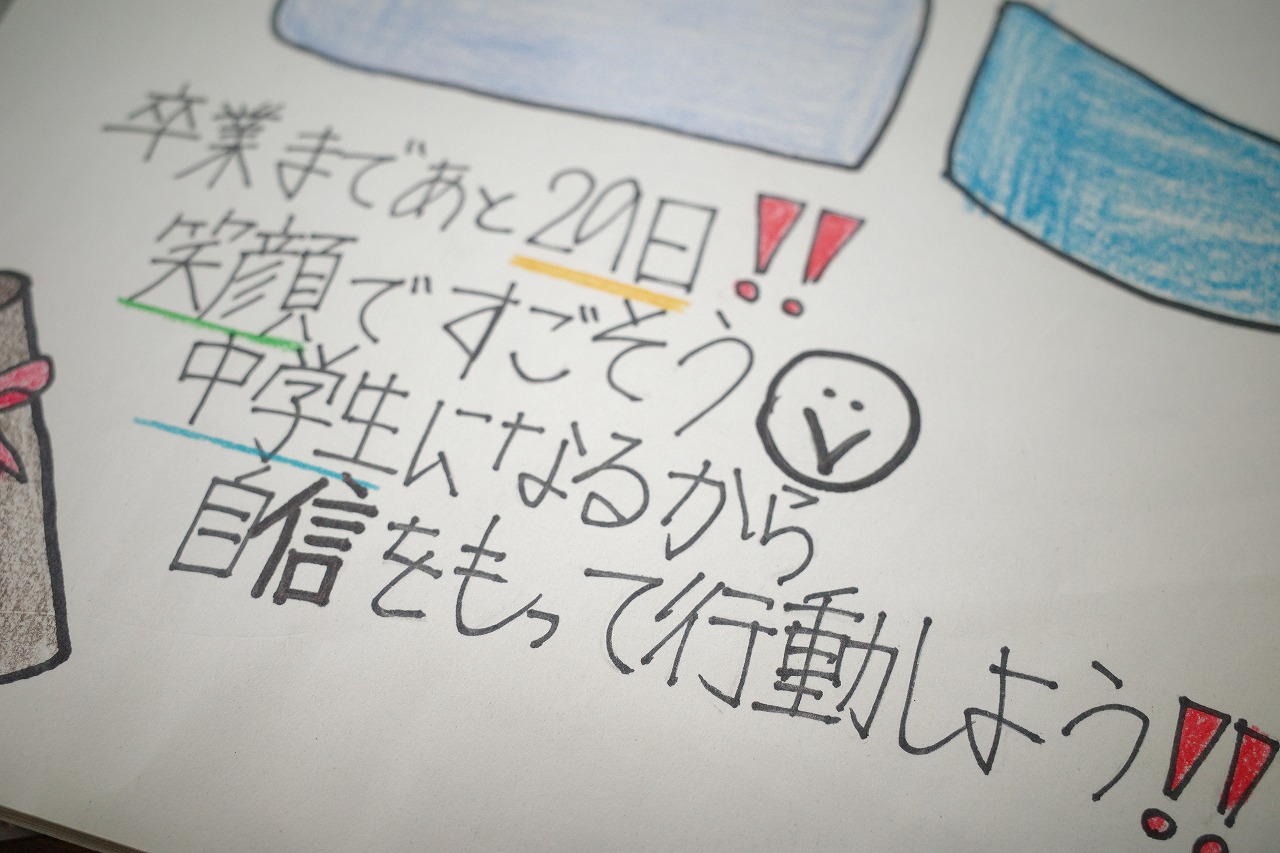 卒業まであと29日!!
笑顔ですごそう
中学生になるから
自信をもって行動しよう!!